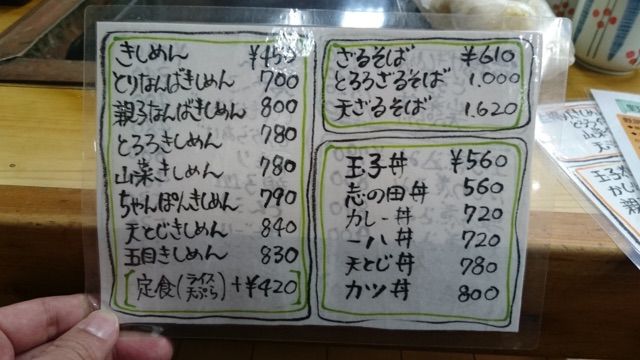 きしめん ¥450
とりなんばきしめん 700
親子なんばきしめん 800
とろろきしめん 780
山菜きしめん 780
ちゃんぽんきしめん 790
天とじきしめん 840
五目きしめん 830
定食(ライス 天ぷら) +¥420
ざるそば ¥610
とろろざるそば 1.000
天ざるそば 1.620
玉子丼 ¥560
志の田丼 560
カレー丼 720
一八丼 720
天とじ丼 780
カツ丼 800